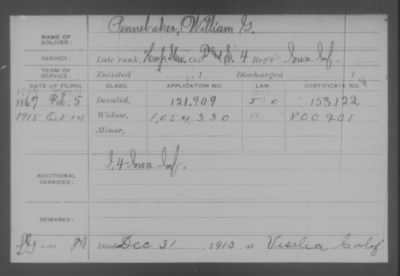 NAME OF SOLDIER: Pennebaker, William G.
SERVICE: Late rank, Hosp. Stew, Co. & D, 4 Reg't Iowa Inf.
TERM OF SERVICE: Enlisted 1 Discharged 1
DATE OF FILING. CLASS. APPLICATION NO. LAW. CERTIFICATE NO.
1867 Feb. 5 Invalid, 121,909 153,122
1915 Oct 14 Widow, 1,054,330 800,901
Minor,
ADDITIONAL SERVICES: D. 4 Iowa Inf.
REMARKS:
Died Dec 31 1913, at Visalia Calif